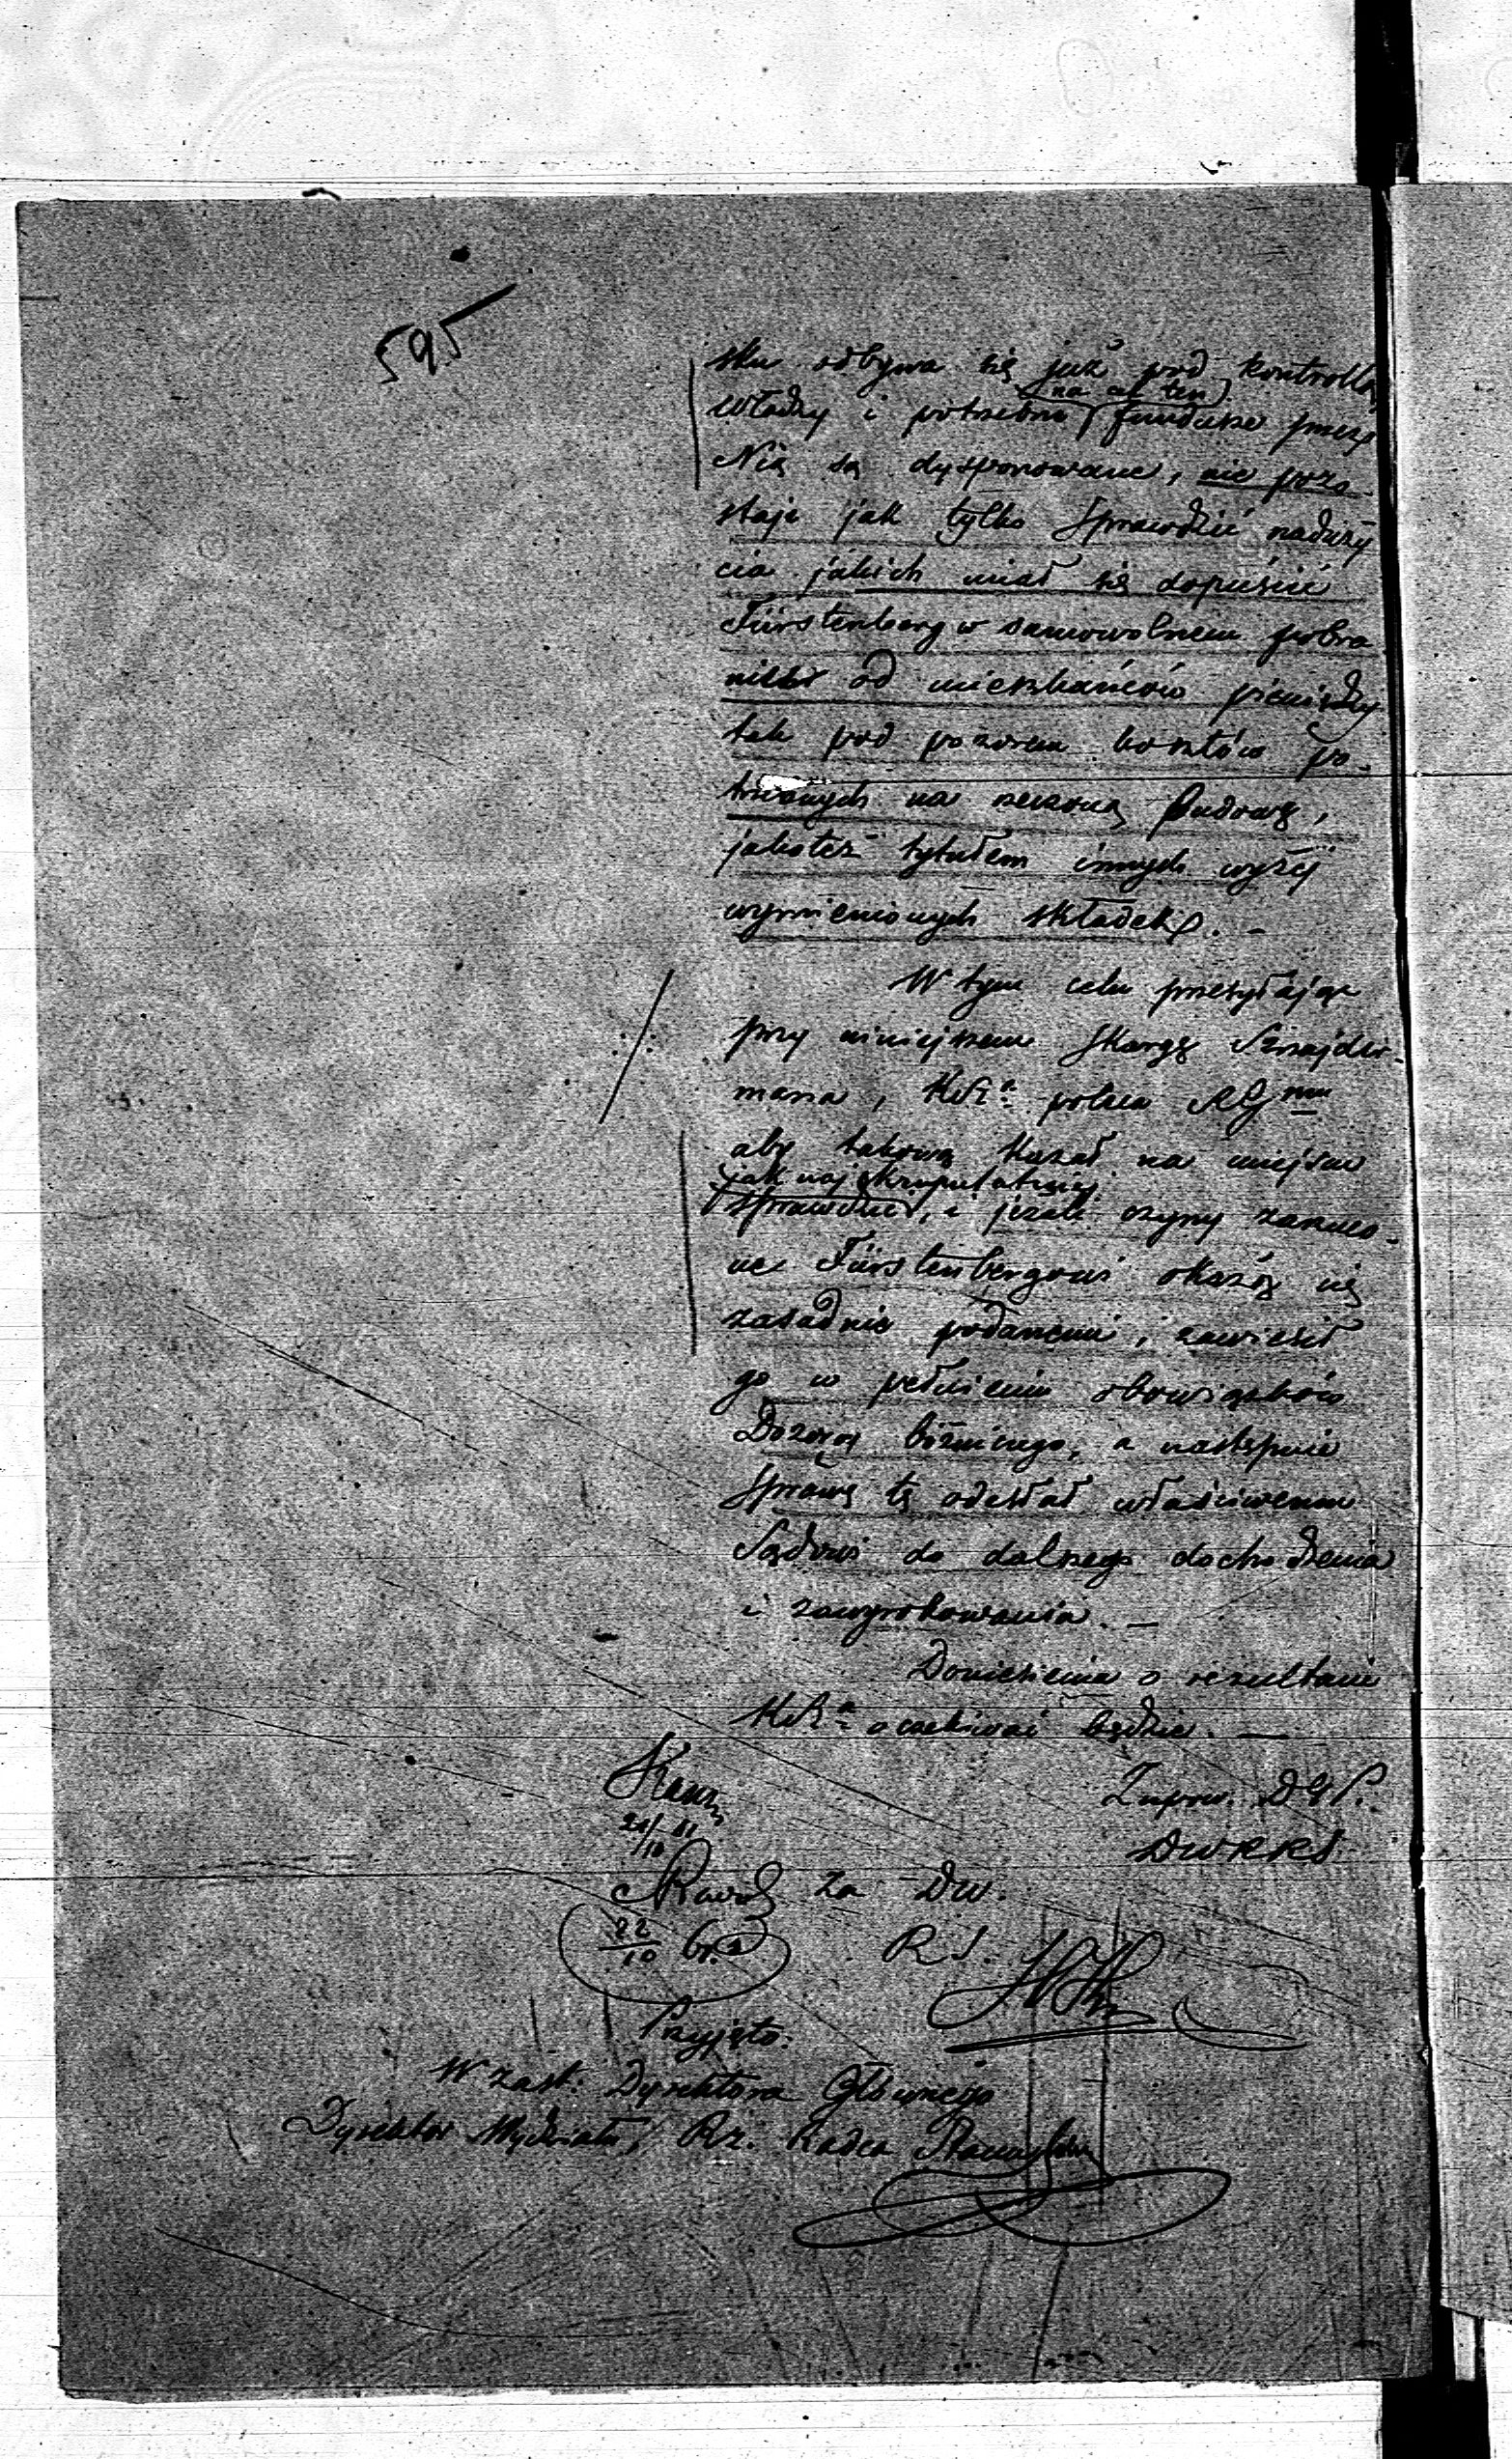 595
sku odbywa się już pod kontrollą
na cel ten
władzy i potrzebne fundusze przez
Nią są dysponowane, nie pozo-
staje jak tylko sprawdzić naduży
cia jakich miał się dopuścić
Fürstenberg w samowolnem pobra
niu od mieszkańców pieniędzy
tak pod pozorem kosztów po-
na rzeczoną budowę,
jakoteż tytułem innych wyżej
wymienionych składek. -
W tym celu przesyłając
przy niniejszem skargę Sznajder-
mana, KRz.ª poleca RGmu
aby takową kazał na miejscu
jak najskrupulatniej
sprawdzić, i jeżeli czyny zarzuco-
ne Fürstenbergowi okażą się
zasadnie podanemi, zawiesił
go w pełnieniu obowiązków
Dozoru bóżniczego, a następnie
sprawę tę odesłał właściwemu
Sądowi do dalszego dochodzenia
i zawyrokowania. —
Doniesienia o rezultacie
KRz.ª oczekiwać będzie. —
21/10
za DW.
22/10
R S.
Przyjęto.
W zast: Dyrektora Głównego
Dyrektor Wydziału, Rz. Radca Stanu